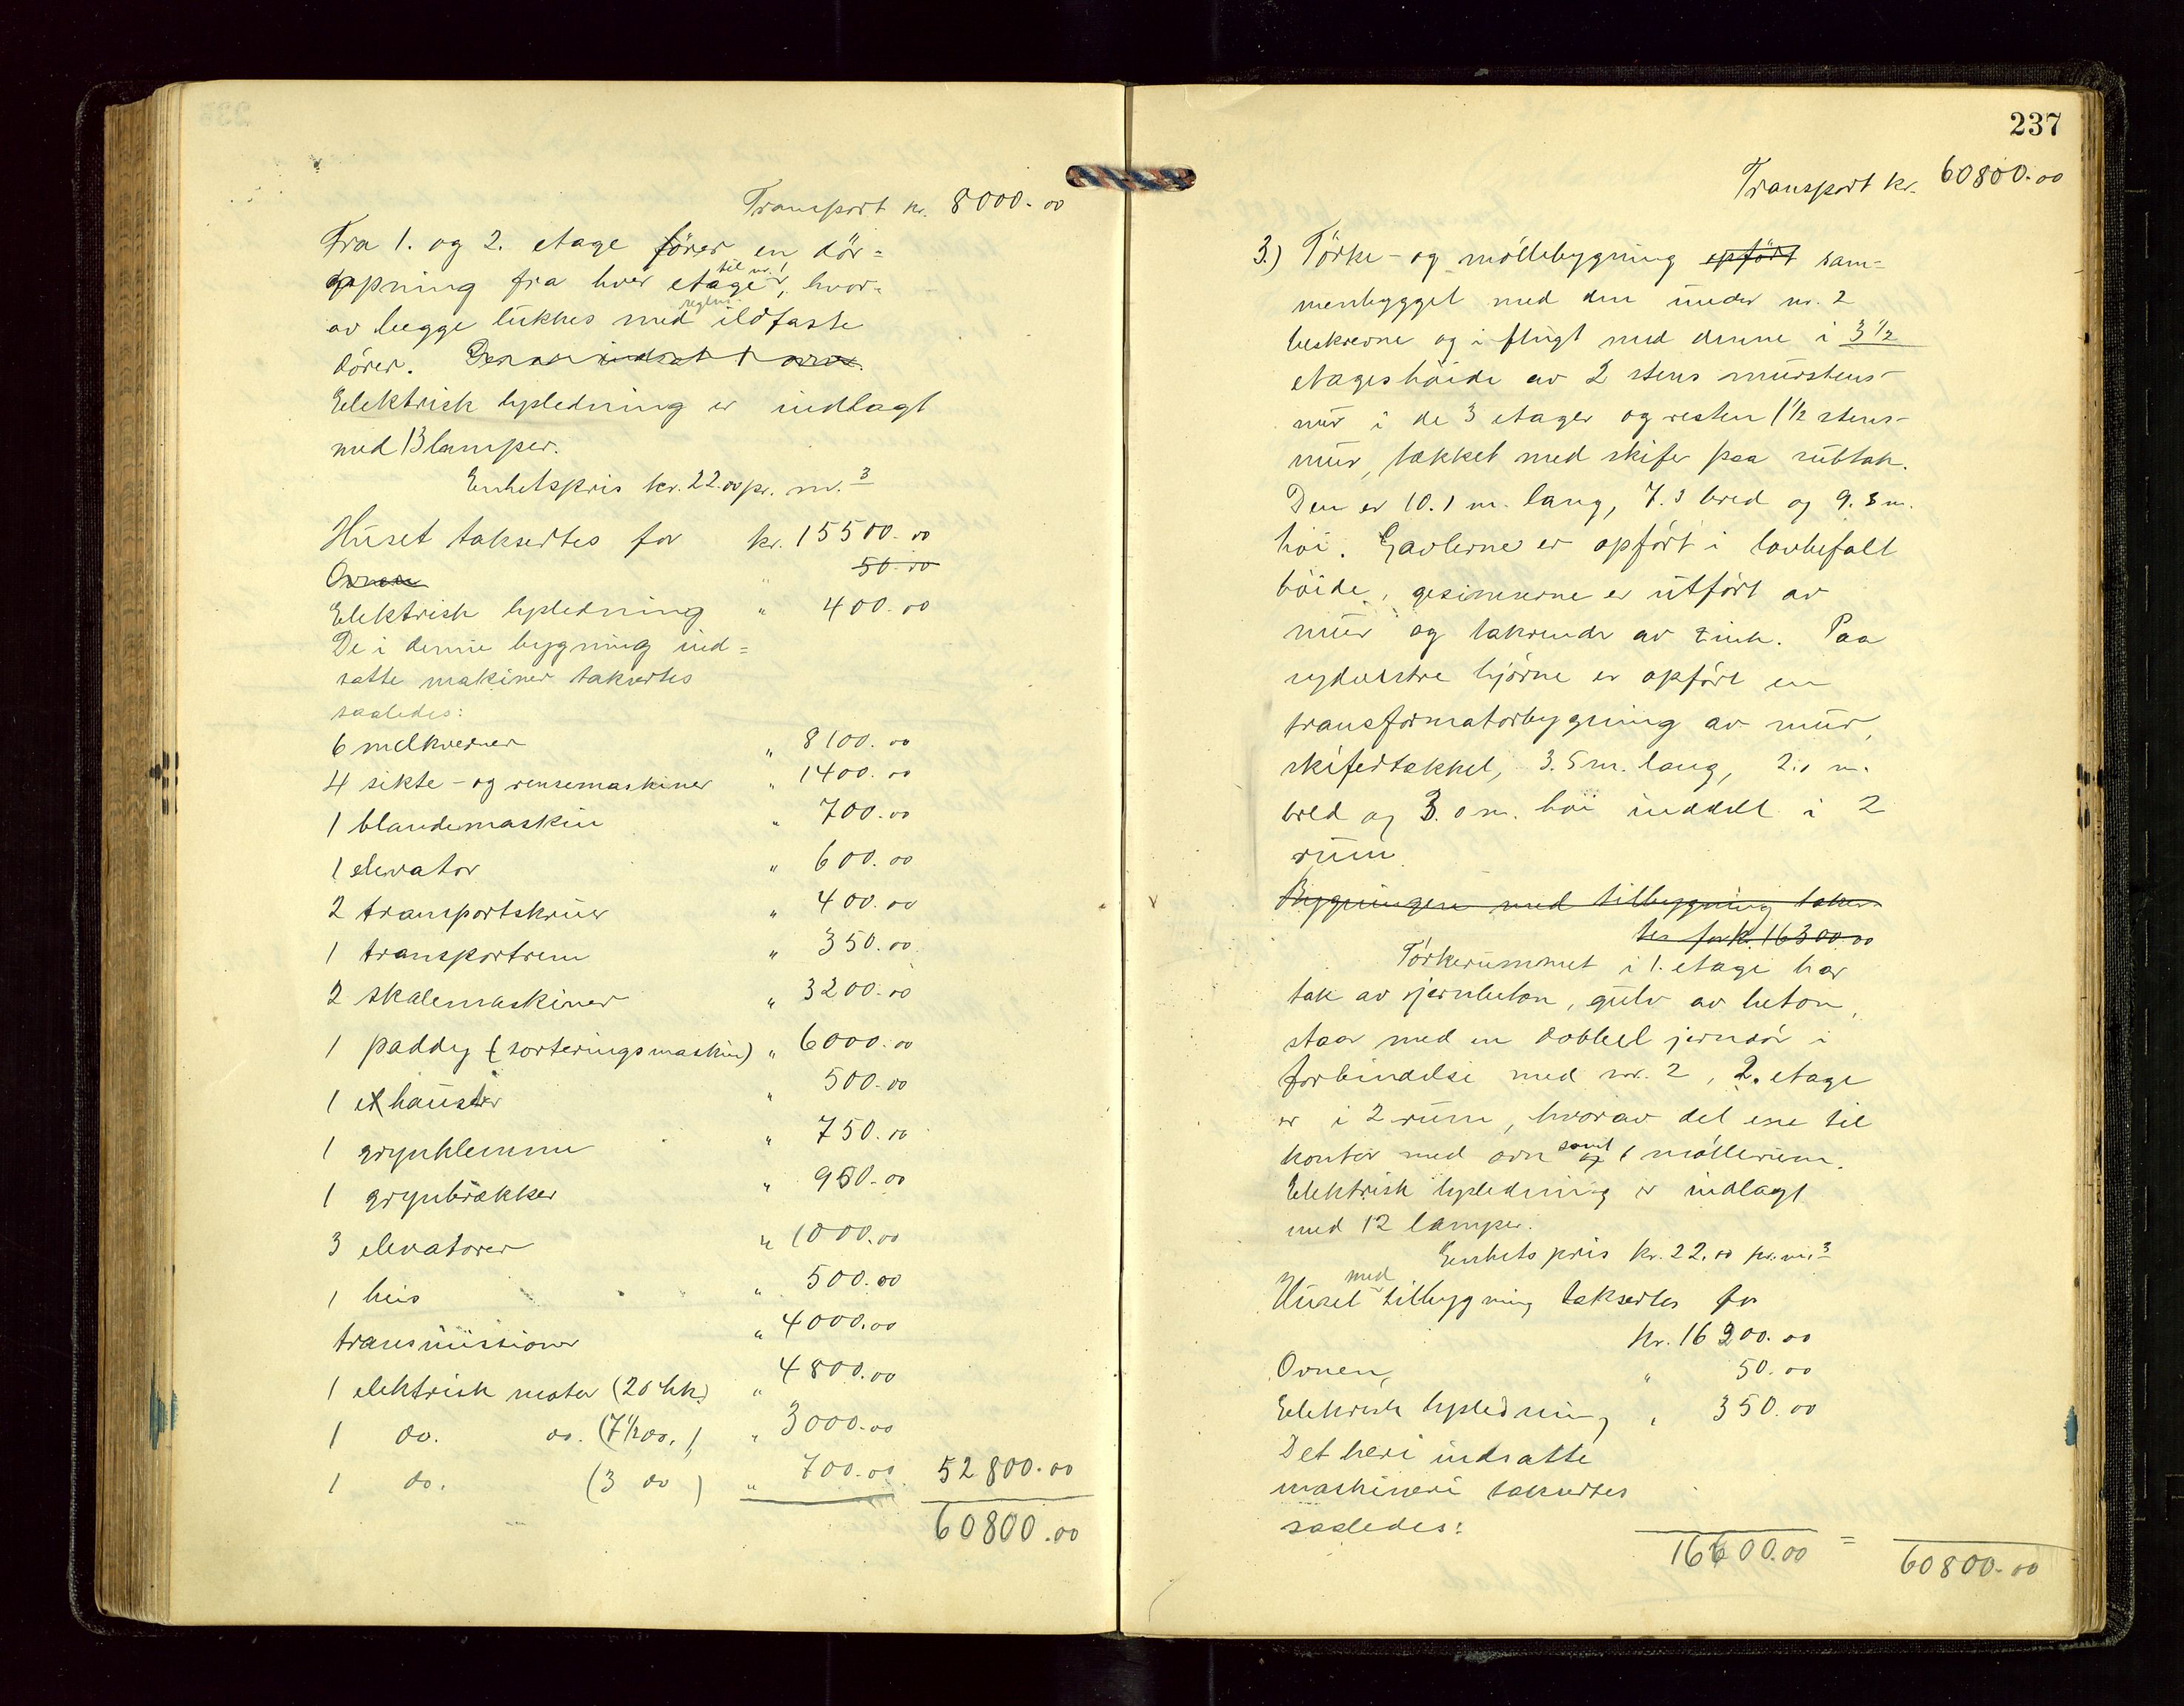 Transport kr. 8000.00
Fra 1. og 2. etage fører en dør=
aapning fra hver etage til nr. 1, hvor=
av begge lukkes med reglem. ildfaste
dører. Der er indsat 1 ovn.
Elektrisk lysledning er indlagt
med 13 lamper.
Enhetspris kr. 22.00 pr. m.3
Huset taksertes for kr. 15500.00
Ovnen " 50.00
Elektrisk lysledning " 400.00
De i denne bygning ind=
satte maskiner taksertes
saaledes:
6 melkverner " 8100.00
4 sikte- og rensemaskiner " 1400.00
1 blandemaskin " 700.00
1 elevator " 600.00
2 transportskruer " 400.00
1 transportrem " 350.00
2 skalemaskiner " 3200.00
1 paddy (sorteringsmaskin) " 6000.00
1 exhauster " 500.00
1 grynklemme " 750.00
1 grynbrækker " 950.00
3 elevatorer " 1000.00
1 heis " 500.00
transmissioner " 4000.00
1 elektrisk motor (20 hk.) " 4800.00
1 do. do. (7 1/2 do.) " 3000.00
1 do. (3 do) " 700.00 52800.00
60800.00
237
Transport kr. 60800.00
3.) Tørke- og møllebygning opført sam=
menbygget med den under nr. 2
beskrevne og i flugt med denne i 3 1/2
etages høide av 2 stens murstens-
mur i de 3 etager og resten 1 1/2 stens-
mur, tækket med skifer paa subtak.
Den er 10.1 m. lang, 7.3 bred og 9.8 m.
høi. Gavlerne er opført i lovbefalt
høide, gesimserne er utført av
mur og takrender av zink. Paa
sydøstre hjørne er opført en
transformatorbygning av mur,
skifertækket, 3.5 m. lang, 2.0 m.
bred og 3.0 m. høi inddelt i 2
rum.
Bygningen med tilbygning takser-
tes for kr. 16300.00
Tørkerummet i 1. etage har
tak av jernbeton, gulv av beton,
staar med en dobbel jerndør i
forbindelse med nr. 2, 2. etage
er i 2 rum, hvorav det ene til
kontor med ovn og samt 1 møllerum.
Elektrisk lysledning er indlagt
med 12 lamper.
Enhetspris kr. 22.00 pr. m.3
Huset med tilbygning taksertes for
kr. 16200.00
Ovnen, " 50.00
Elektrisk lysledning " 350.00
Det heri indsatte
maskineri taksertes
saaledes:
16600.00 = 60800.00